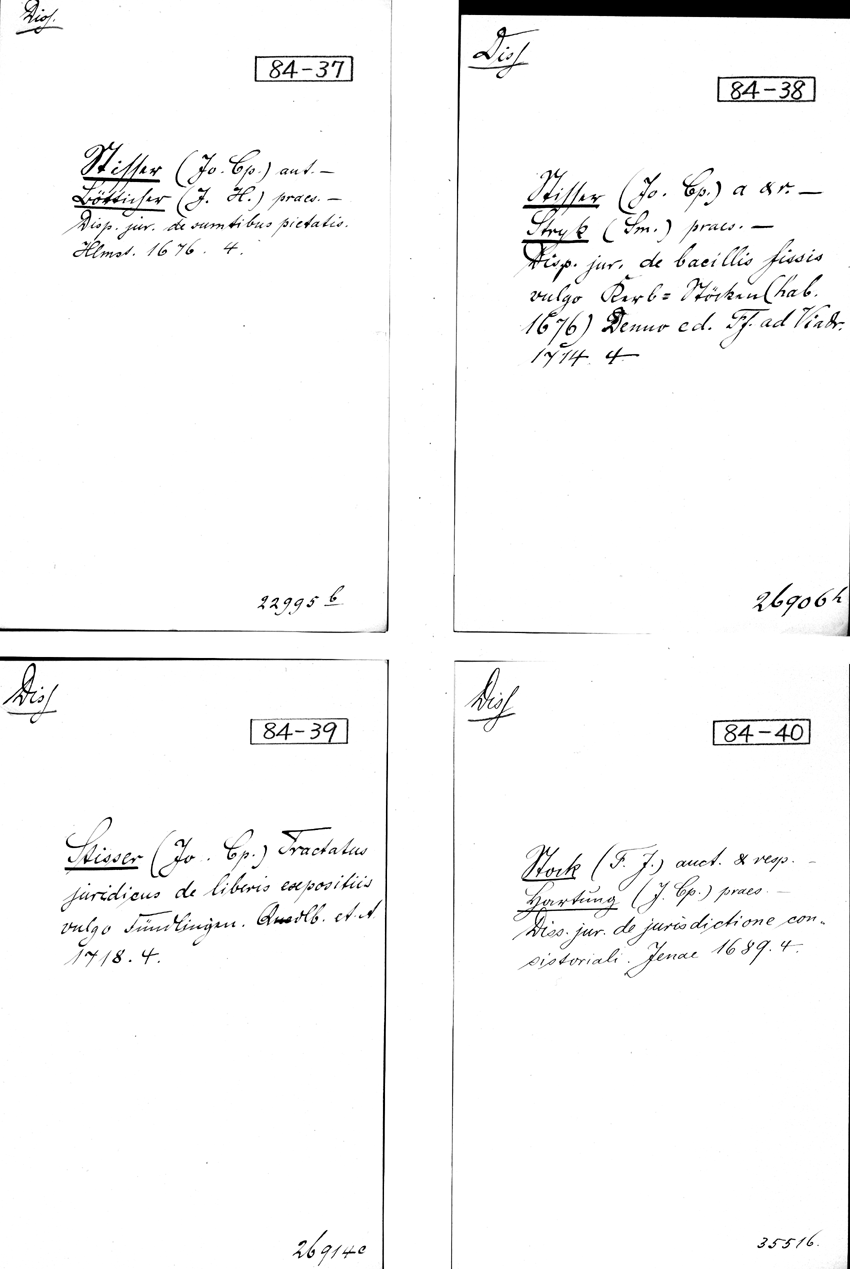 Diss.
84-37
Stisser (Jo. Cp.) aut. —
Bötticher (J. H.) praes. —
Disp. jur. de sumtibus pietatis.
Hlmst. 1676. 4.
22995 b
Diss
84-38
Stisser (Jo. Cp.) a & r. —
Stryk (Sm.) praes. —
Disp. jur. de bacillis fissis
vulgo Kerb= Stöcken (hab.
1676) Denuo ed. Ff. ad Viadr.
1714. 4
26906 h
Diss
84-39
Stisser (Jo. Cp.) Tractatus
juridicus de liberis expositiis
vulgo Fündlingen. Quedlb. et A
1718. 4.
26914 e
Diss
84-40
Stock (F. J.) auct. & resp. —
Hartung (J. Cp.) praes. —
Diss. jur. de jurisdictione con-
sistoriali. Jenae 1689. 4.
35516.